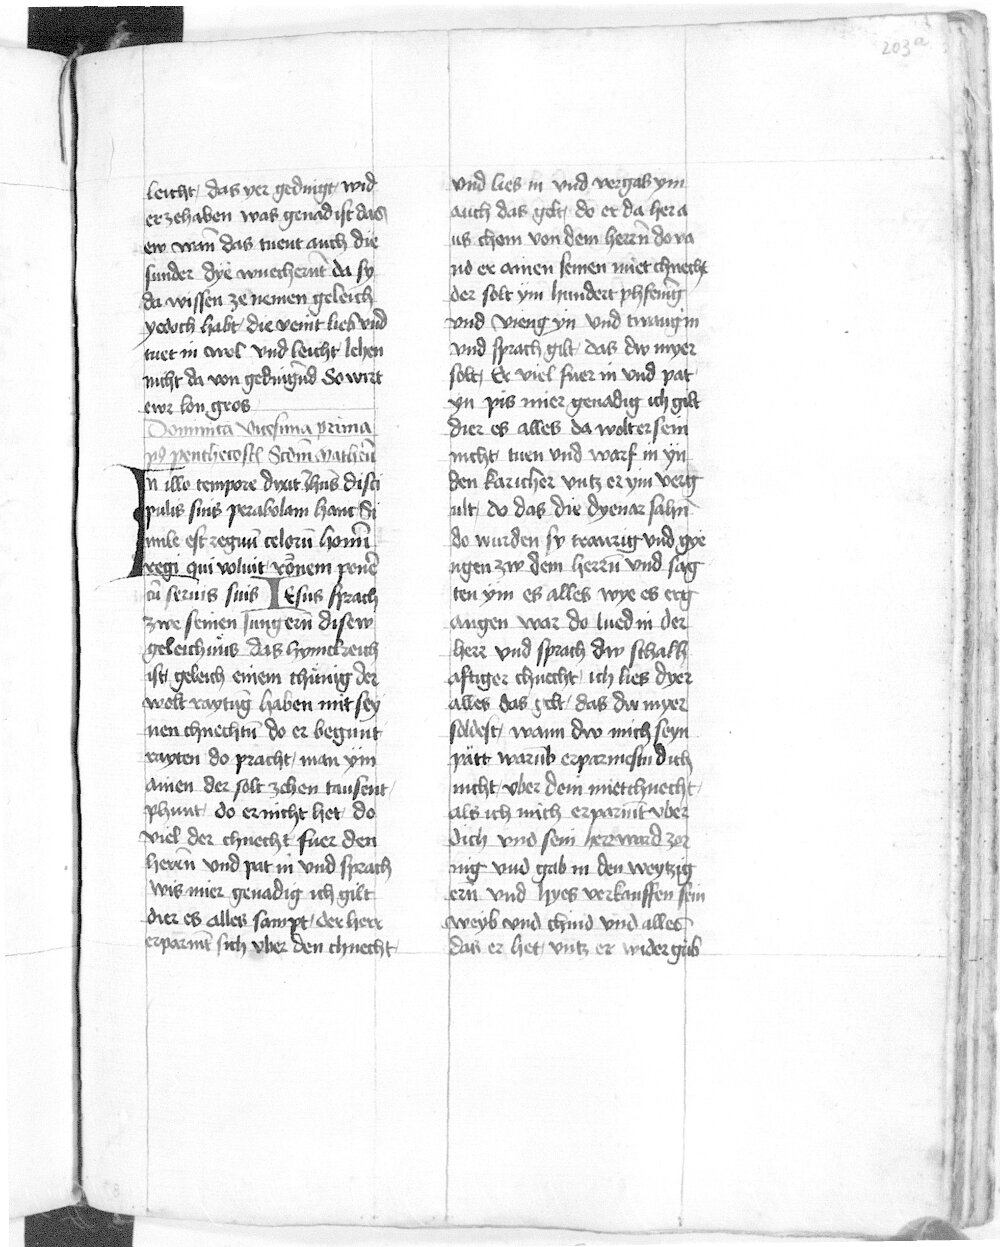 203a
leicht das yer gedingt wid
erzehaben was genad ist das
ew wan̄ das tuent auch die
sunder dye wuechernt da sy
da wissen ze nemen geleich
yedoch habt die veint lieb vnd
tuet in wol vnd leicht lehen
nicht da von gedingūd So wirt
ewr lon gros
Dominica vicesima prima
p9 penthecost Scdm Matheū
In illo tempore dixit Ihūs disci
pulis suis perabolam hanc Si
mile est regnū celorū homī
regi qui voluit rōnem ponē
cū seruis suis Iesus sprach
zwe seinen Jungern disew
geleichnüs das hymelreich
ist geleich einem chünig der
wolt raytūg haben mit sey
nen chnechtn̄ do er begunt
rayten do pracht man ym
ainen der solt zehen tausent
phunt do er nicht het do
viel der chnecht fuer den
herrn vnd pat in vnd sprach
wis mier genadig ich gilt
dier es alles sampt der herr
erparmt sich vber den chnecht
vnd lies in vnd vergab ym
auch das gelt do er da her a
us chom von dem herrn do va
nd er ainen seinen miet chnecht
der solt ym hundert phfenīg
vnd vieng yn vnd twang in
vnd sprach gilt das dw myer
solt Er viel fuer in vnd pat
yn pis mier genadig ich gilt
dier es alles da wolt er sein
nicht tuen vnd warf in yn
den karicher vntz er ym verg
ult do das die dyenar sahn̄
do wurden sy trawrig vnd gye
ngen zw dem herrn̄ vnd sag
ten ym es alles wye es erg
angen war do lued in der
herr vnd sprach dw schalk
aftiger chnecht ich lies dyer
alles das gelt das dw myer
soldest wann dw mich seyn
pätt warūb erparmestu dich
nicht vber dem mietchnecht
als ich mich erparmt vber
dich vnd sein herr ward zor
nig vnd gab in den weytzig
ern vnd hyes verkauffen sein
weyb vnd chind vnd alles
das er het vntz er wider gab